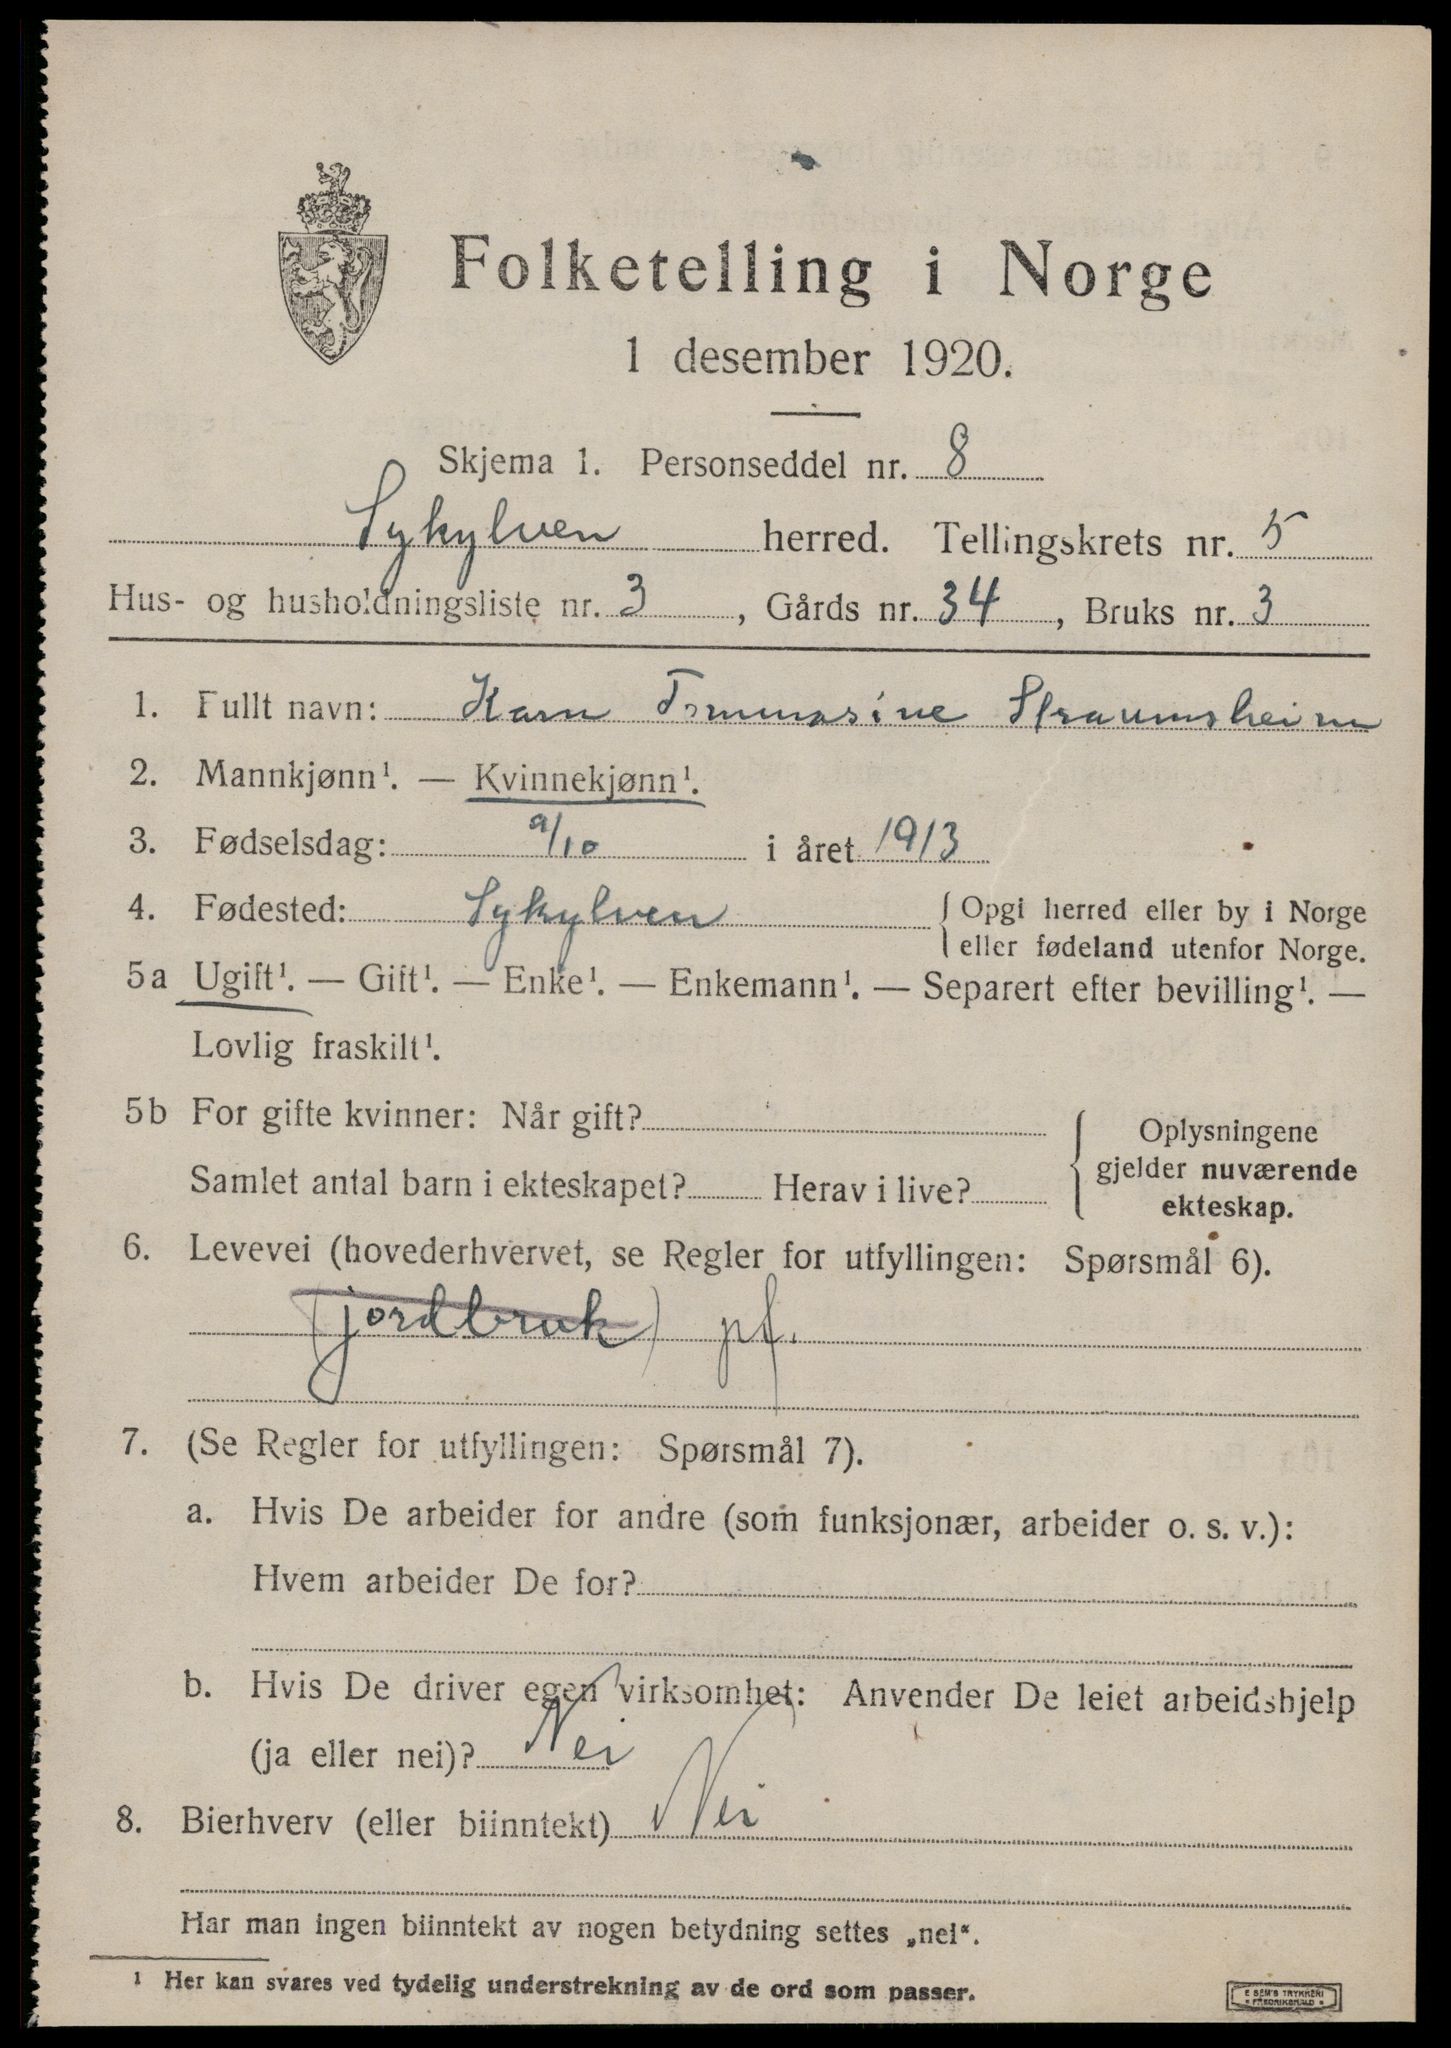 Folketelling i Norge
1 desember 1920.
Skjema 1. Personseddel nr. 8
Sykylven herred. Tellingskrets nr. 5
Hus- og husholdningsliste nr. 3, Gårds nr. 34, Bruks nr. 3
1. Fullt navn: Karn Tommasine Straumsheim
2. Mannkjønn¹. — Kvinnekjønn¹.
3. Fødselsdag: 9/10 i året 1913
4. Fødested: Sykylven { Opgi herred eller by i Norge
eller fødeland utenfor Norge.
5a Ugift¹. — Gift¹. — Enke¹. — Enkemann¹. — Separert efter bevilling¹. —
Lovlig fraskilt¹.
5b For gifte kvinner: Når gift? { Oplysningene
gjelder nuværende
ekteskap.
Samlet antal barn i ekteskapet? Herav i live?
6. Levevei (hovederhvervet, se Regler for utfyllingen: Spørsmål 6).
(jordbruk) pf.
7. (Se Regler for utfyllingen: Spørsmål 7).
a. Hvis De arbeider for andre (som funksjonær, arbeider o. s. v.):
Hvem arbeider De for?
b. Hvis De driver egen virksomhet: Anvender De leiet arbeidshjelp
(ja eller nei)? Nei
8. Bierhverv (eller biinntekt) Nei
Har man ingen biinntekt av nogen betydning settes „nei“.
¹ Her kan svares ved tydelig understrekning av de ord som passer.
E SEM'S TRYKKERI
FREDRIKSHALD